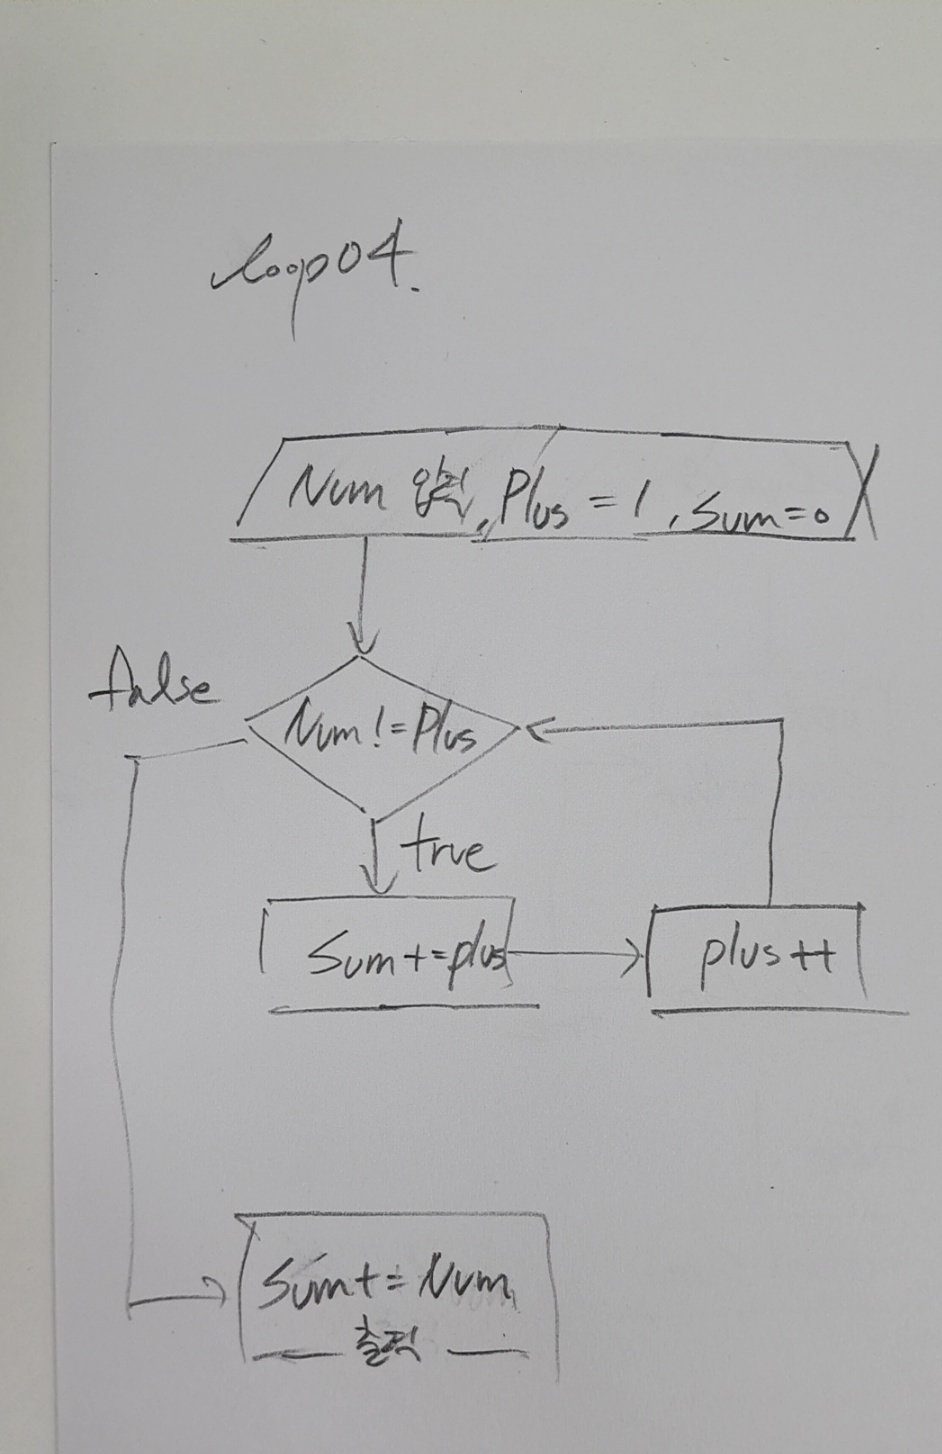 loop04.
Num 입력, Plus = 1, Sum=0
false
Num != Plus
true
Sum+=plus
plus++
Sum+= Num
출력